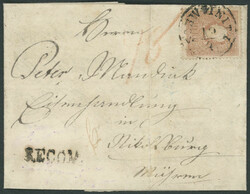 Herrn
Peter Mandink
Eisenhandlung
in
Nikolsburg
Mähren
RECOM.